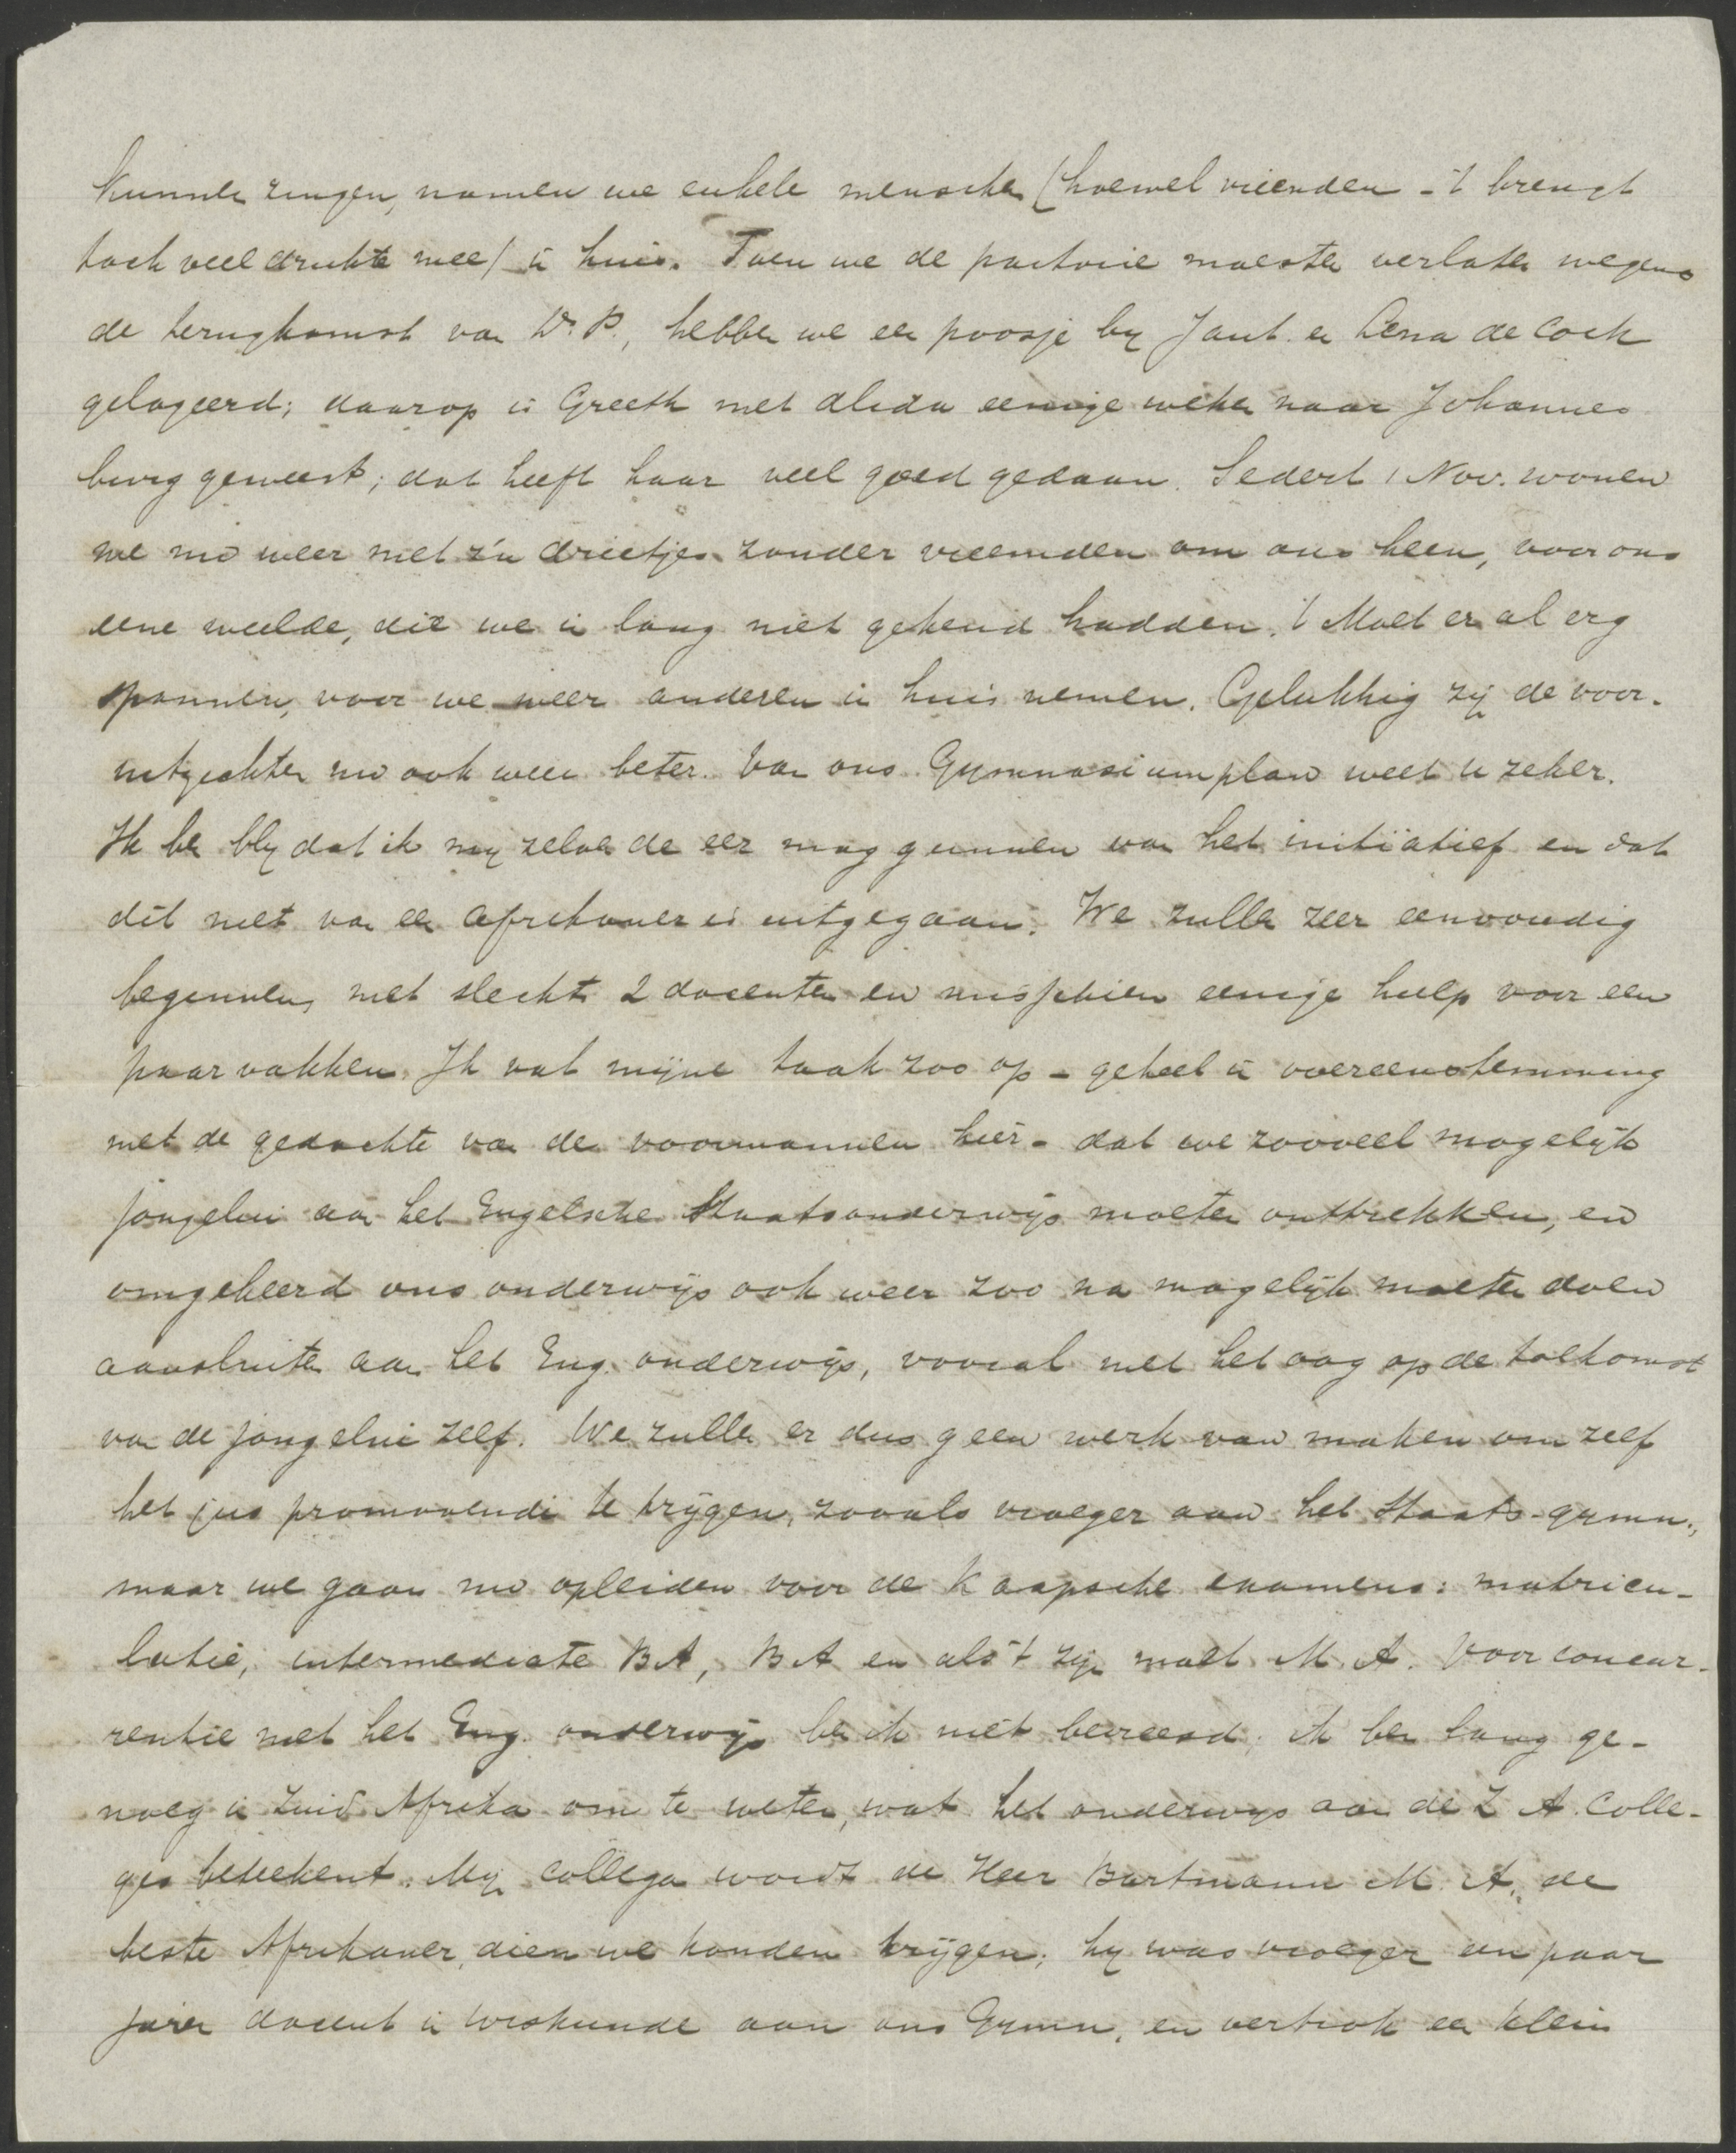 kunnen zingen, namen we enkele menschen (hoewel vrienden - 't brengt
toch veel drukte mee) in huis. Toen we de pastorie moesten verlaten wegens
de terugkomst van Ds. P., hebben we een poosje by Jant. en Lena de Cock
gelogeerd; daarop is Greeth met Alida eenige weken naar Johannes
burg geweest; dat heeft haar veel goed gedaan. Sedert 1 Nov. wonen
we nu weer met z'n drietjes zonder vreemden om ons heen, voor ons
eene weelde, die we in lang niet gekend hadden. 't Moet er al erg
spannen, voor we weer anderen in huis nemen. Gelukkig zijn de voor-
uitzichten nu ook weer beter. Van ons Gymnasiumplan weet u zeker.
Ik ben bly dat ik my zelve de eer mag gunnen van het initiatief en dat
dit niet van een Afrikaner is uitgegaan. We zullen zeer eenvoudig
beginnen, met slechts 2 docenten en misschien eenige hulp voor een
paar vakken. Ik vat mijne taak zoo op - geheel in overeenstemming
met de gedachte van de voormannen hier - dat we zooveel mogelijk
jongelui aan het Engelsche Staatsonderwijs moeten onttrekken, en
omgekeerd ons onderwijs ook weer zoo na mogelijk moeten doen
aansluiten aan het Eng. onderwijs, vooral met het oog op de toekomst
van de jongelui zelf. We zullen er dus geen werk van maken om zelf
het jus promovendi te krijgen, zooals vroeger aan het Staats-gymn.,
maar we gaan nu opleiden voor de Kaapsche examens: matricu-
latie, intermediate BA, BA en als 't zijn moet M.A. Voor concur-
rentie met het Eng. onderwijs ben ik niet bevreesd; ik ben lang ge-
noeg in Zuid Afrika om te weten, wat het onderwys aan de Z. A. Colle-
ges beteekent. Mijn collega wordt de Heer Bartmann M. A., de
beste Afrikaner, dien we konden krijgen; hy was vroeger een paar
jaren docent in wiskunde aan ons Gymn, en vertrok een klein